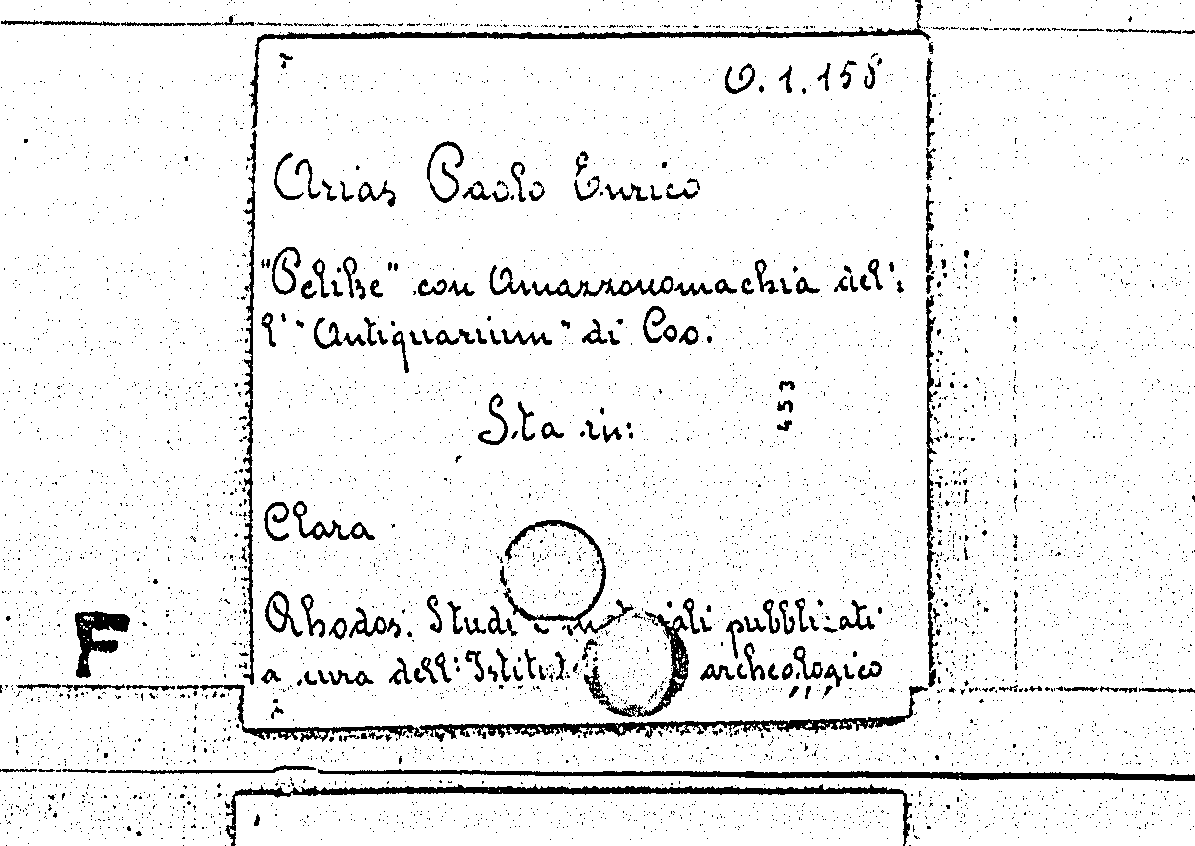 O.1.158
Arias Paolo Enrico
"Pelike" con Amazzonomachia del:
l' "Antiquarium" di Coo.
453
Sta in:
Clara
Rhodos. Studi e pubblicati
a cura dell'Istituto archeologico
F